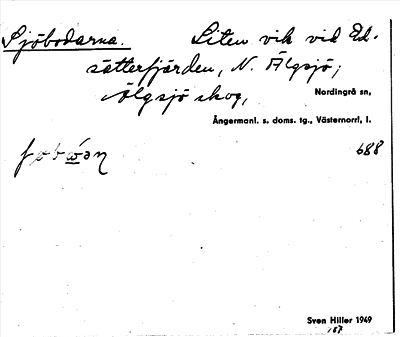 Sjöbodarna. Liten vik vid Ed-
sätterfjärden, N. Älgsjö;
Älgsjö skog, Nordingrå sn,
Ångermanl. s. doms. tg., Västernorrl, l.
688
Sven Hiller 1949
187